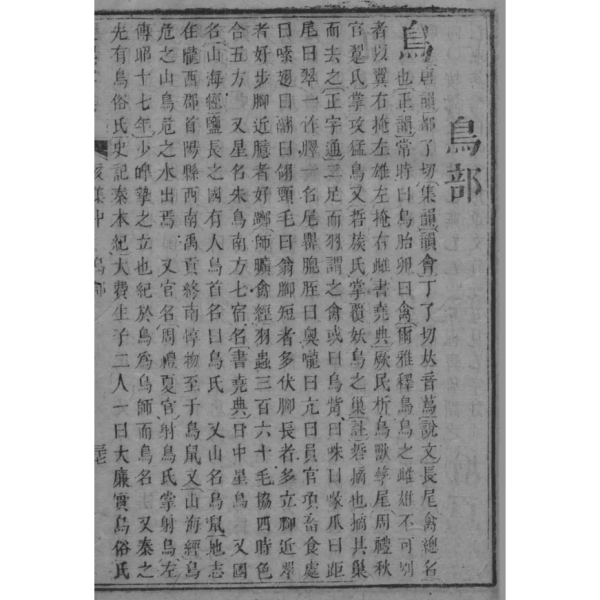 鳥部
鳥
唐韻都了切集韻韻會丁了切𠀤音蔦說文長尾禽總名
也正韻常時曰鳥胎卵曰禽爾雅釋鳥鳥之雌雄不可別
者以翼右掩左雄左掩右雌書堯典厥民析鳥獸孳尾周禮秋
官翨氏掌攻猛鳥又硩蔟氏掌覆妖鳥之巢註硩摘也摘其巢
而去之正字通二足而羽謂之禽或曰鳥觜曰咮曰喙爪曰距
尾曰翠一作膵一名尾罌膍胵曰奧嚨曰亢曰員官項畜食處
曰嗉翅曰翮曰翎頸毛曰翁腳短者多伏腳長者多立腳近翠
者好步腳近臆者好躑師曠禽經羽蟲三百六十毛協四時色
合五方 又星名朱鳥南方七宿名書堯典日中星鳥 又國
名山海經鹽長之國有人鳥首名曰鳥氏 又山名鳥鼠地志
在隴西郡首陽縣西南禹貢終南惇物至于鳥鼠又山海經鳥
危之山鳥危之水出焉 又官名周禮夏官射鳥氏掌射鳥左
傳昭十七年少皥摯之立也紀於鳥爲鳥師而鳥名 又秦之
先有鳥俗氏史記秦本紀大費生子二人一曰大廉實鳥俗氏
亥集中 鳥部